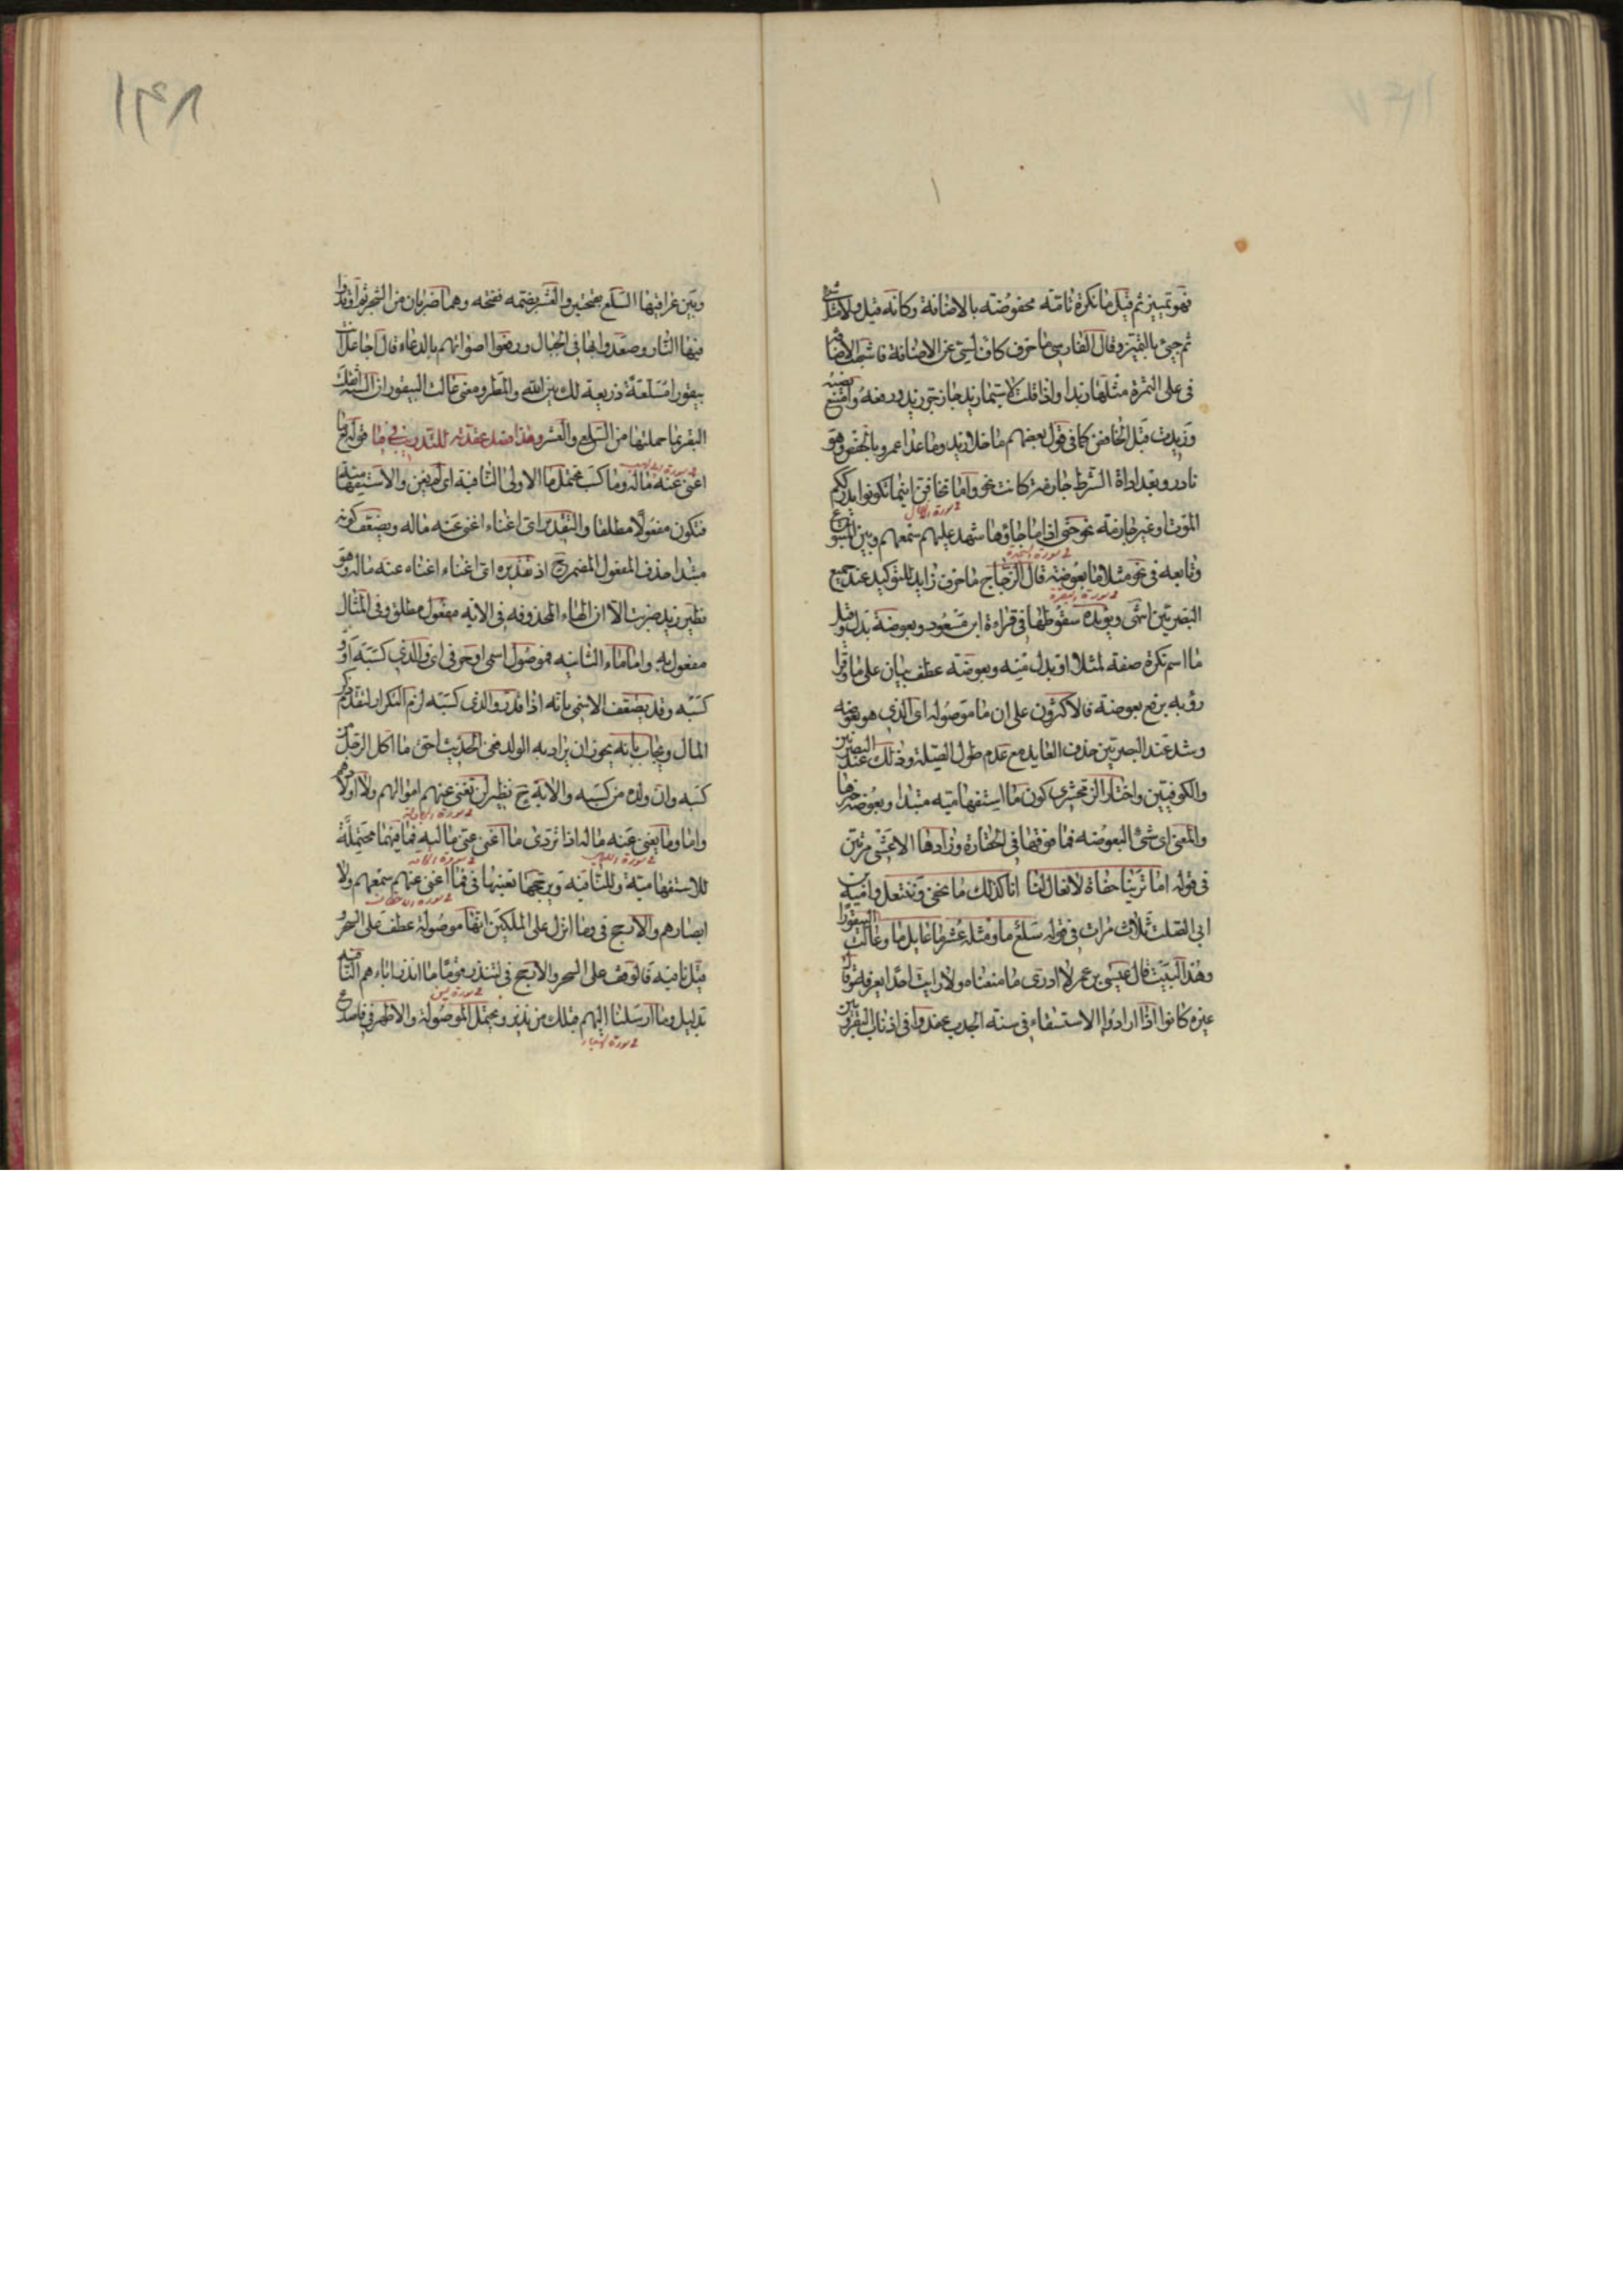 فهو تمييز ثم قيل ما نكرة تامة مخفوضة بالاضافة وكانه قيل ولا مثل شئ
ثم جيئ بالتمييز وقال الفارسي ما حرف كاف لسي عن الاضافة فاشبهت الاضافة
في على التمرة مثلها زبدا واذا قلت لا سيما زيد جاز جر زيد ورفعه وامتنع نصبه
وزيدت قبل الخافض كما في قول بعضهم ما خلا زيد وما عدا عمرو بالخفض وهو
نادر وبعد اداة الشرط جازمة كانت نحو واما تخافن اينما تكونوا يدرككم
الموت او غير جازمة نحو حتى اذا ما جاؤها شهد عليهم سمعهم وبين المتبوع
وتابعه في نحو مثلا ما بعوضة قال الزجاج ما حرف زايد للتوكيد عند جميع
البصريين انتهى ويؤيده سقوطها في قراءة ابن مسعود وبعوضة بدل وقيل
ما اسم نكرة صفة لمثلا او بدل منه وبعوضة عطف بيان على ما وقرا
رؤبه برفع بعوضة فالاكثرون على ان ما موصولة اى الذي هو بعوضه
وشذ عند البصريين حذف العايد مع عدم طول الصلة وذلك عند البصريين
والكوفيين واختار الزمخشري كون ما استفهامية مبتدا وبعوضة خبرها
والمعنى اى شئ البعوضه فما فوقها في الحقارة وزادها الاعشى مرتين
في قوله اما ترينا حفاة لا نعال لنا انا كذلك ما نحفى وننتعل وامية بن
ابي الصلت ثلاث مرات في قوله سلع ما ومثله عشر ما عايل ما وعالت البيقورا
وهذا البيت قال عيسى بن عمر لا ادرى ما معناه ولا رايت احدا يعرفه وقال
غيره كانوا اذا ارادوا الاستسقاء في سنة الجدب عقدوا في اذناب البقر وبين
وبين عراقيبها السلع بفتحتين والعشر بضمه ففتحه وهما ضربان من الشجر ثم اوقدوا
فيها النار وصعدوا بها في الجبال ورفعوا اصواتهم بالدعاء قال اجاعل انت
بيقورا مسلعة ذريعة لك بين الله والمطر ومعنى عالت البيقور ان السنة اثقلت
البقر بما حملتها من السلع والعشر وهذا فصل عقدته للتدريب في ما قوله ما
اغنى عنه ماله وما كسب تحتمل ما الاولى النافية اى لم يغن والاستفهامية
فتكون مفعولا مطلقا والتقدير اى اغناء اغنى عنه ماله ويضعف كونه
مبتدا حذف المفعول المضمر ح اذ تقديره اى اغناء اغناه عنه ماله وهو
نظير زيد ضربت الا ان الهاء المحذوفه في الاية مفعول مطلق وفي المثال
مفعول به واما ماء الثانيه فموصول اسمي او حرفي اى والذي كسبه او و
كسبه وقد يضعف الاسمي بانه اذا قدر والذي كسبه لزم التكرار لتقدم ذكر
المال ويجاب بانه يجوز ان يراد به الولد ففي الحديث احق ما اكل الرجل من
كسبه وان ولده من كسبه والاية ح نظير لن تغني عنهم اموالهم ولا اولادهم
واما وما يغني عنه ماله اذا تردى ما اغنى عني ماليه فما فيهما محتملة
للاستفهامية وللنافية ويرجحها تعينها في فما اغنى عنهم سمعهم ولا
ابصارهم والارجح في وما انزل على الملكين انها موصولة عطف على السحر و
قيل نافية فالوقف على السحر والارجح في لتنذر قوما ما انذر اباءهم النافية
بدليل وما ارسلنا اليهم قبلك من نذير ويحتمل الموصولة والاظهر في فاصدع